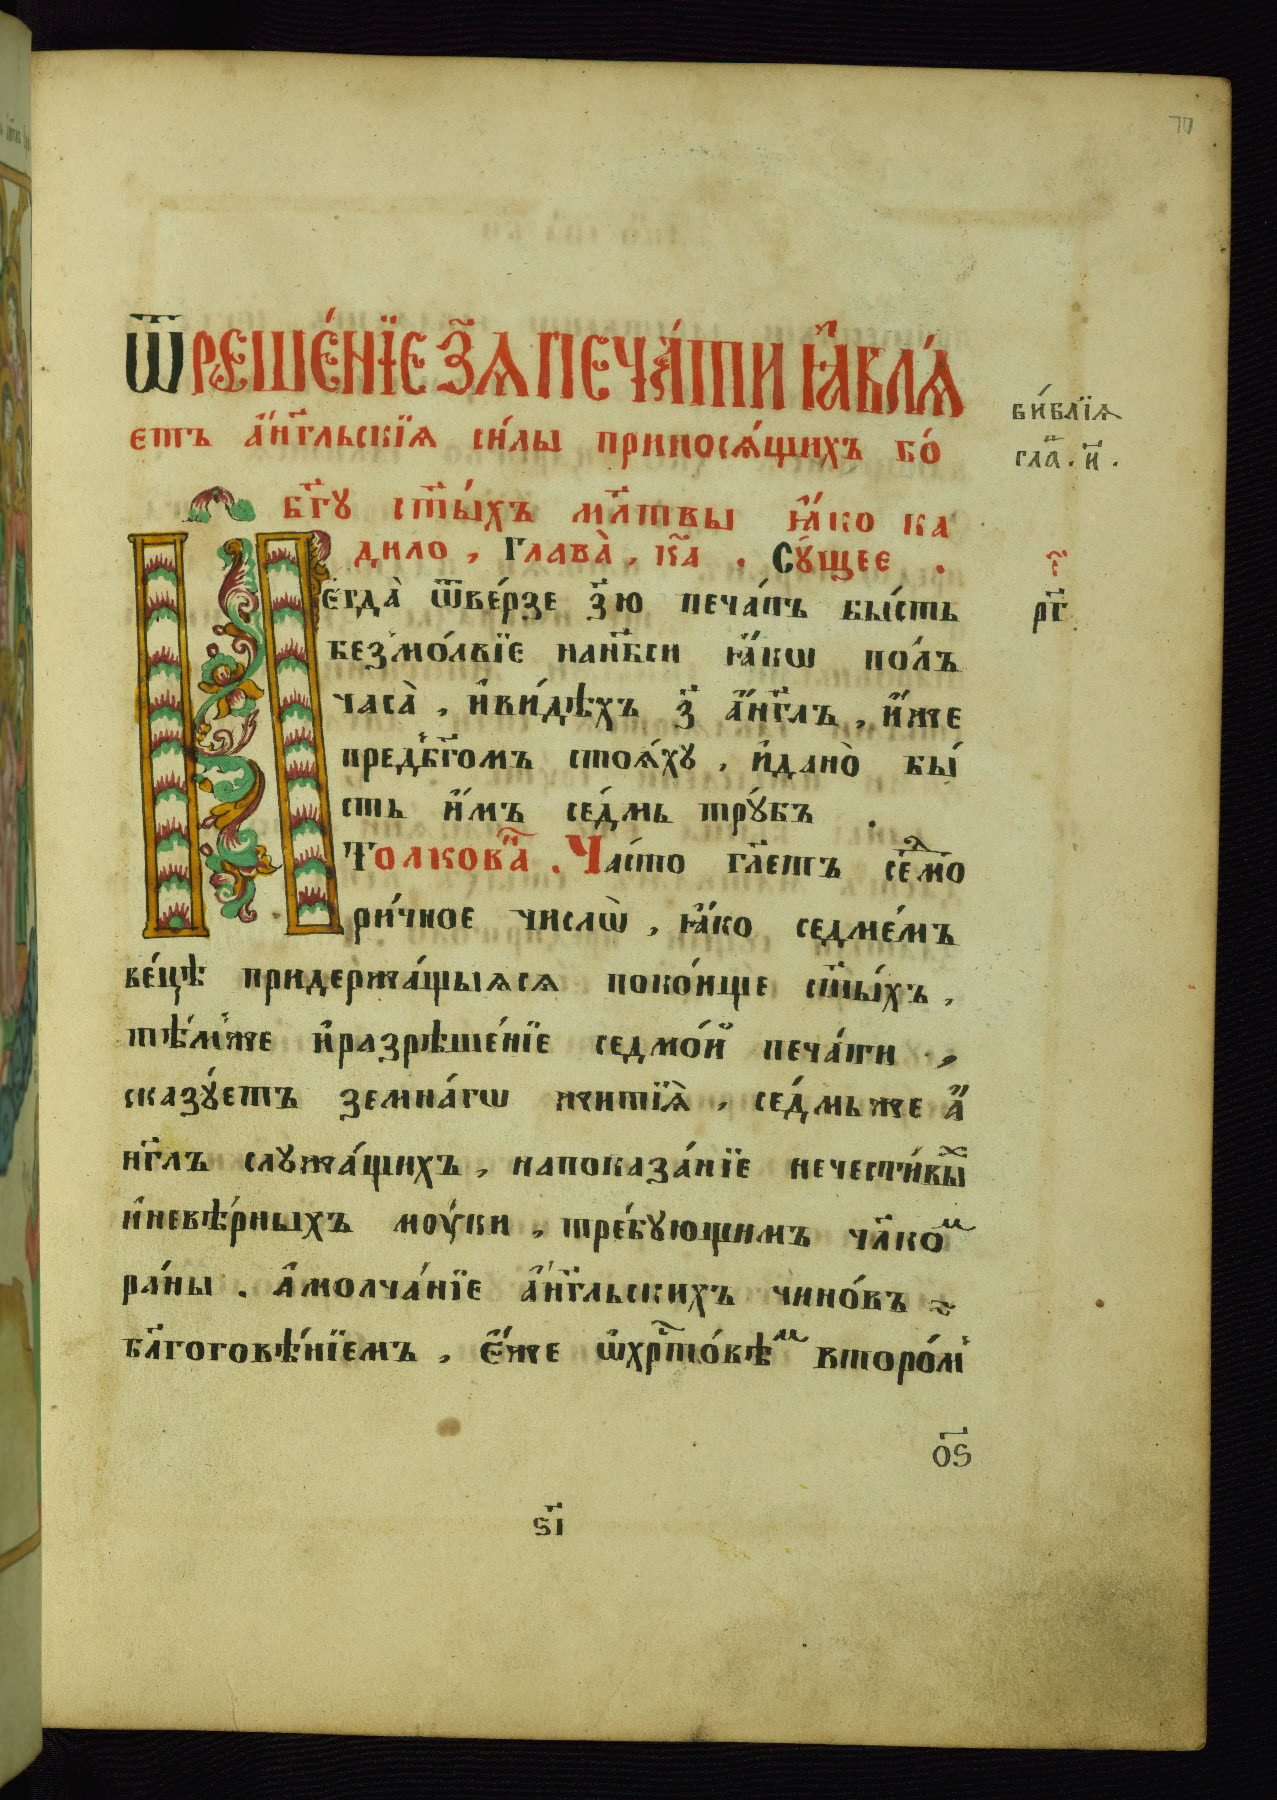 70
Ѿрешéнїе з҃ѧ печáти ꙗ҆влѧ́
етъ а҆́нг҃льскїѧ си́лы приносѧ́щихъ бо́
бг҃у ст҃ы́хъ мл҃твы ꙗ҆́ко ка
дило, Глава̀, к҃а . Су́щее .
Егда̀ ѿвéрзе з҃ю печáть бы́сть
безмо́лвїе нан҃бси ꙗ҆́кѡ полъ
часа̀, и҆ви́дѣхъ з҃ а҆́нг҃лъ, и҆́же
предбг҃омъ стоѧ́ху, и҆дано̀ бы́
сть и҆́мъ сéдмь трýбъ .
Толков҃а . Чáсто гл҃етъ седмо
ри́чное числѡ̀, ꙗ҆́ко седмéмъ
вéцѣ придержáщыѧсѧ поко́ище ст҃ы́хъ,
тѣ́мже и҆разрѣшéнїе седмо́й печáти,
сказýетъ земнáгѡ житїѧ̀, сéдмьже а҆́
нг҃лъ служáщихъ, напоказáнїе нечести́вых
и҆невѣ́рныхъ моýки, трéбующимъ чл҃ком
рáны . А҆молчáнїе а҆́нг҃льскихъ чино́въ ~
бл҃гоговѣ́нїемъ, є҆́же ѡ҆хрⷭ҇то́вѣм второ́м
би́блїѧ
гла҃ . и҃ .
г҃
рг҃
ѻ҃ѕ
ѕ҃і